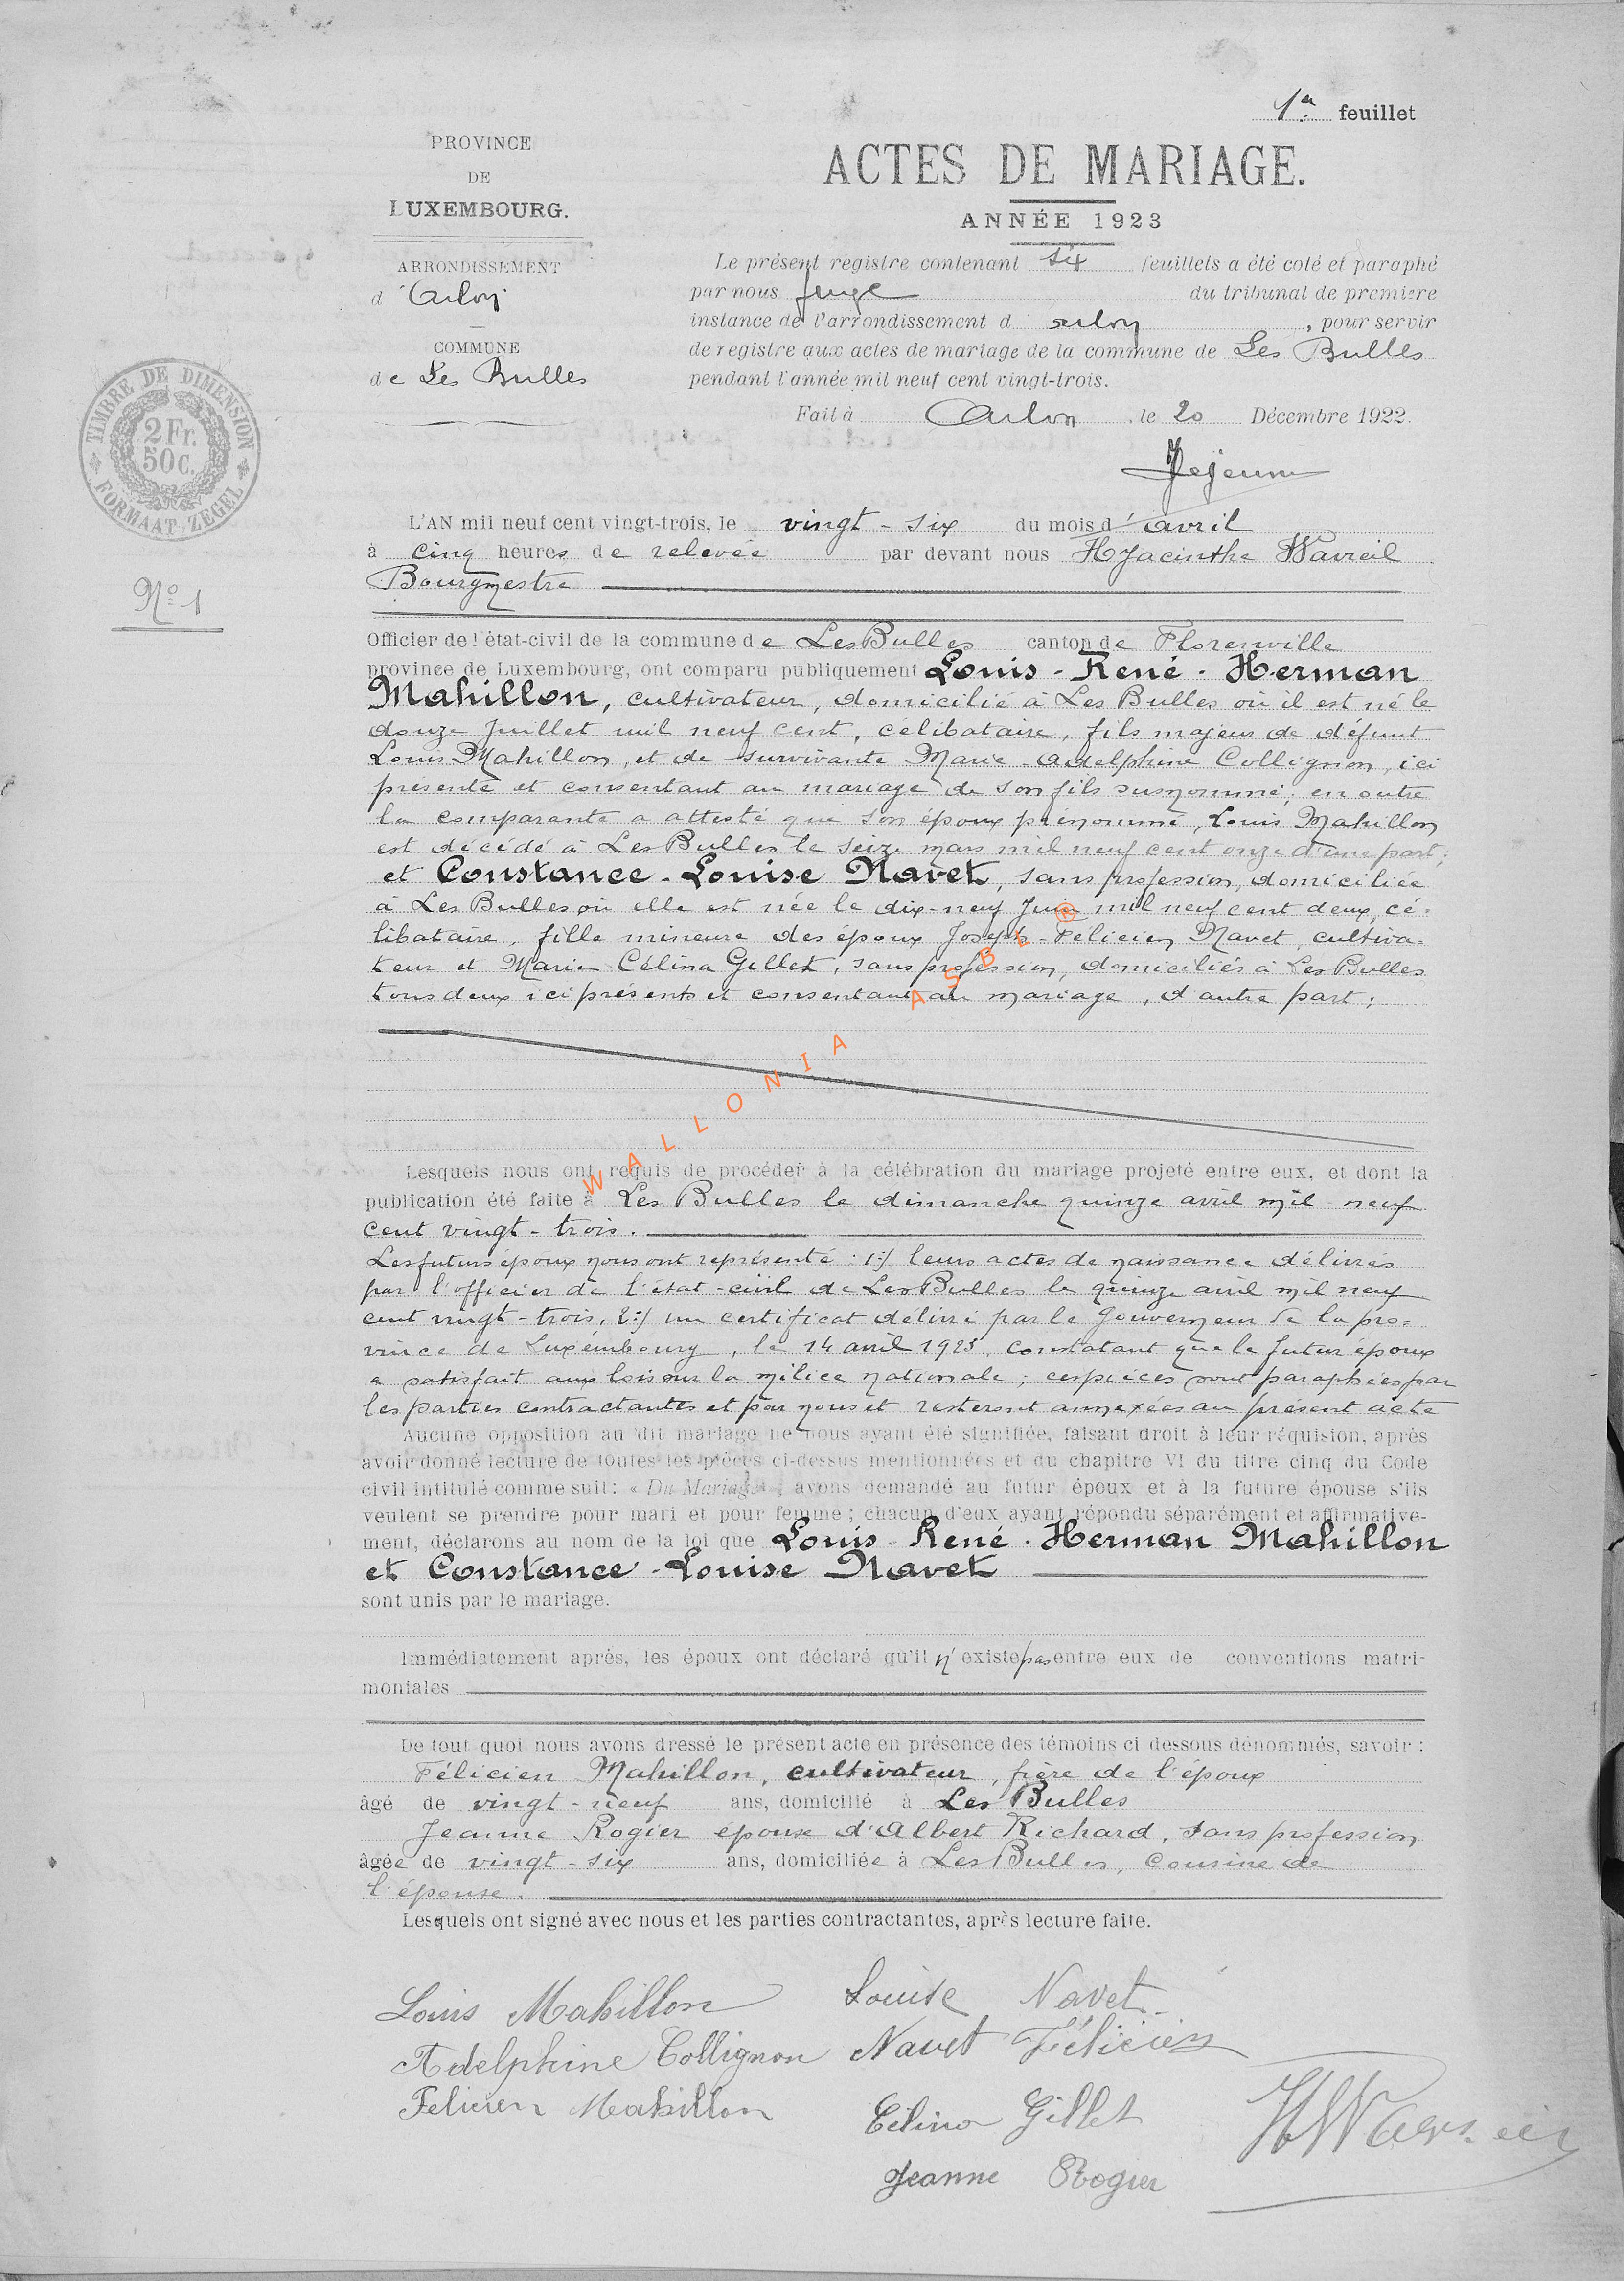 1er feuillet
PROVINCE
DE
LUXEMBOURG.
ARRONDISSEMENT
d'Arlon
COMMUNE
de Les Bulles
ACTES DE MARIAGE.
ANNÉE 1923
Le présent registre contenant six feuillets a été coté et paraphé
par nous Juge du tribunal de première
instance de l'arrondissement d Arlon, pour servir
de registre aux actes de mariage de la commune de Les Bulles
pendant l'année mil neuf cent vingt-trois.
Fait à Arlon, le 20 Décembre 1922.
TIMBRE DE DIMENSION
2 Fr.
50 C.
FORMAAT ZEGEL
No 1
L'AN mil neuf cent vingt-trois, le vingt-six du mois d'avril
à cinq heures de relevée par devant nous Hyacinthe
Bourgmestre
Officier de l'état-civil de la commune de Les Bulles canton de Florenville
province de Luxembourg, ont comparu publiquement Louis-René-Herman
Mahillon, cultivateur, domicilié à Les Bulles où il est né le
douze Juillet mil neuf cent, célibataire, fils majeur de défunt
Louis Mahillon, et de survivante Marie-Adelphine Collignon, ici
présente et consentant au mariage de son fils susnommé; en outre
la comparante a attesté que son époux prénommé, Louis Mahillon
est décédé à Les Bulles le seize mars mil neuf cent onze d'une part;
et Constance-Louise Navet, sans profession, domiciliée
à Les Bulles où elle est née le dix-neuf Juin mil neuf cent deux, cé-
libataire, fille mineure des époux Joseph-Félicien Navet, cultiva-
teur et Marie-Célina Gillet, sans profession, domiciliés à Les Bulles
tous deux ici présents et consentant au mariage, d'autre part;
WALLONIA ASBL ®
Lesquels nous ont requis de procéder à la célébration du mariage projeté entre eux, et dont la
publication été faite à Les Bulles le dimanche quinze avril mil neuf
cent vingt-trois.
Les futurs époux nous ont représenté : 1:/ leurs actes de naissance délivrés
par l'officier de l'état-civil de Les Bulles le quinze avril mil neuf
cent vingt-trois, 2:/ un certificat délivré par le Gouverneur de la pro-
vince de Luxembourg, le 14 avril 1923, constatant que le futur époux
a satisfait aux lois sur la milice nationale; ces pièces sont paraphées par
les parties contractantes et par nous et resteront annexées au présent acte
Aucune opposition au dit mariage ne nous ayant été signifiée, faisant droit à leur réquision, après
avoir donné lecture de toutes les pièces ci-dessus mentionnées et du chapitre VI du titre cinq du Code
civil intitulé comme suit : « Du Mariage », avons demandé au futur époux et à la future épouse s'ils
veulent se prendre pour mari et pour femme ; chacun d'eux ayant répondu séparément et affirmative-
ment, déclarons au nom de la loi que Louis-René-Herman Mahillon
et Constance-Louise Navet
sont unis par le mariage.
Immédiatement après, les époux ont déclaré qu'il n'existe pas entre eux de conventions matri-
moniales
De tout quoi nous avons dressé le présent acte en présence des témoins ci dessous dénommés, savoir :
Félicien Mahillon, cultivateur, frère de l'époux
âgé de vingt-neuf ans, domicilié à Les Bulles
Jeanne Rogier épouse d'Albert Richard, sans profession
âgée de vingt-six ans, domiciliée à Les Bulles, cousine de
l'épouse.
Lesquels ont signé avec nous et les parties contractantes, après lecture faite.
Louis Mahillon Louise Navet
Adelphine Collignon Navet Félicien
Felicien Mahillon Célina Gillet
Jeanne Rogier